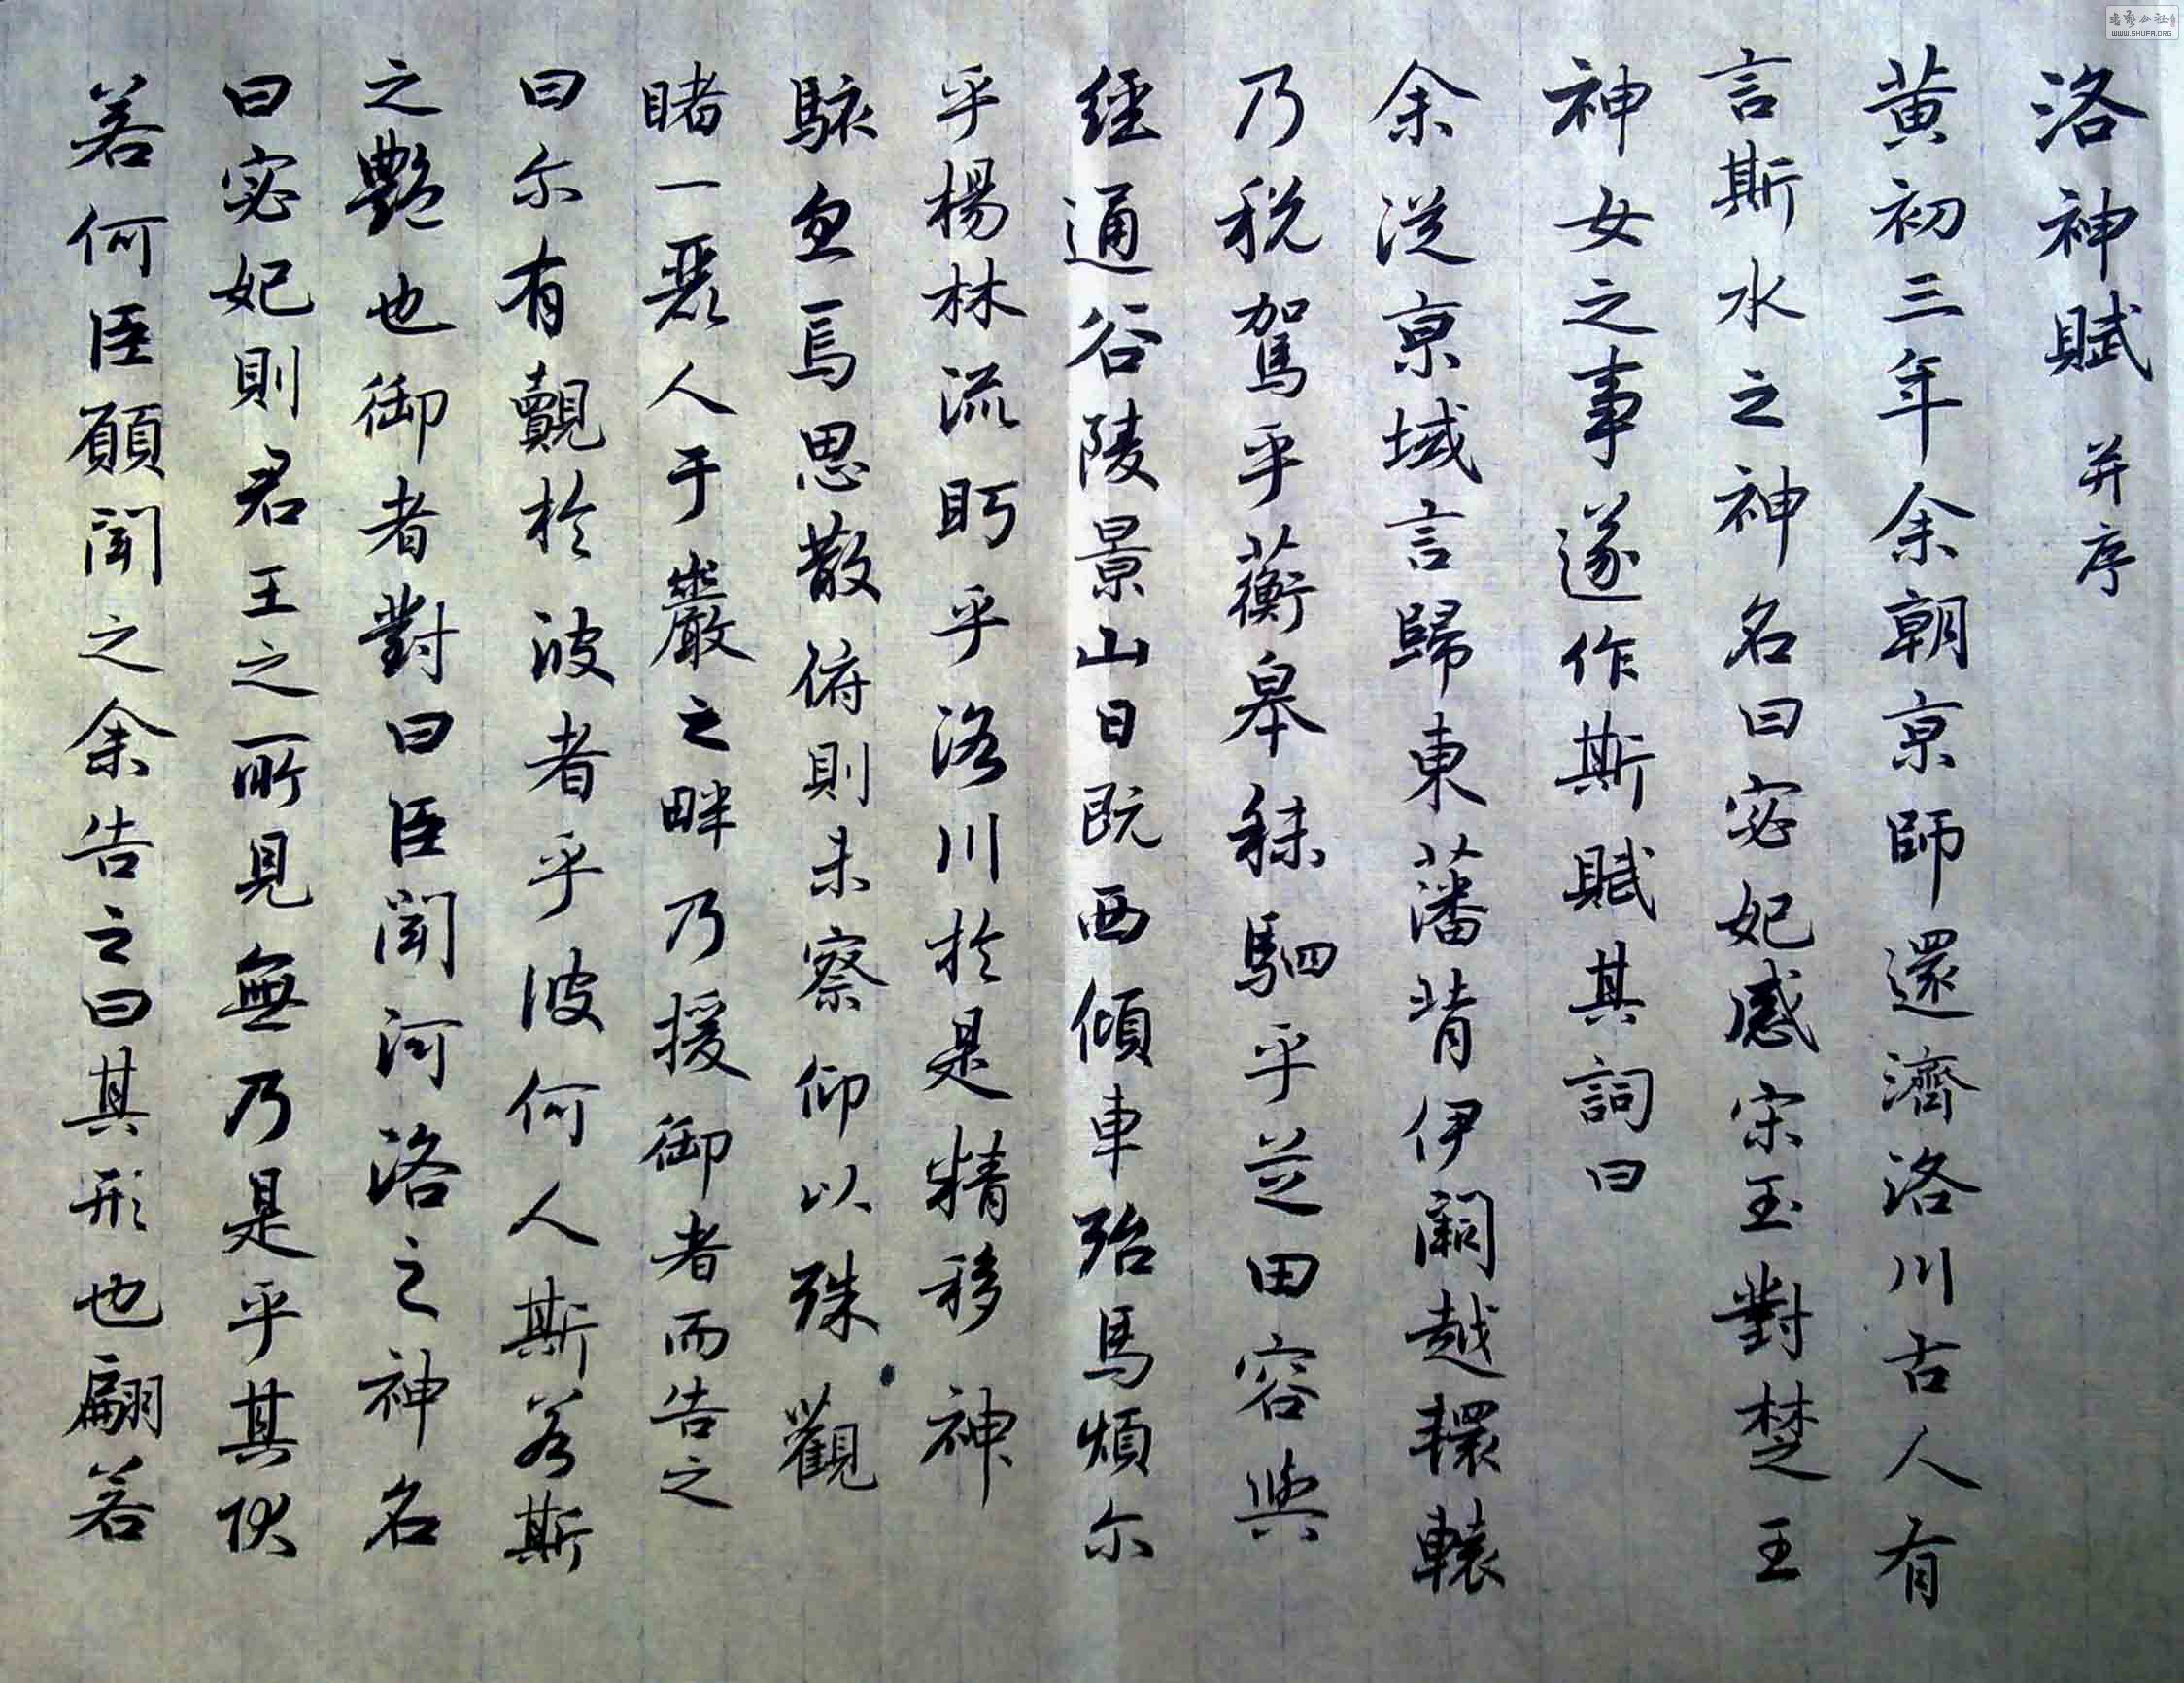 洛神賦 并序
黄初三年余朝京師還濟洛川古人有
言斯水之神名曰宓妃感宋玉對楚王
神女之事遂作斯賦其詞曰
余從京域言歸東藩背伊闕越轘轅
經通谷陵景山日既西傾車殆馬煩尔
乃税駕乎蘅皋秣駟乎芝田容與
乎楊林流眄乎洛川於是精移神
駭忽焉思散俯則未察仰以殊觀
睹一麗人于巖之畔乃援御者而告之
曰尔有覿於彼者乎彼何人斯若斯
之艷也御者對曰臣聞河洛之神名
曰宓妃則君王之所見無乃是乎其狀
若何臣願聞之余告之曰其形也翩若
书艺公社
WWW.SHUFA.ORG